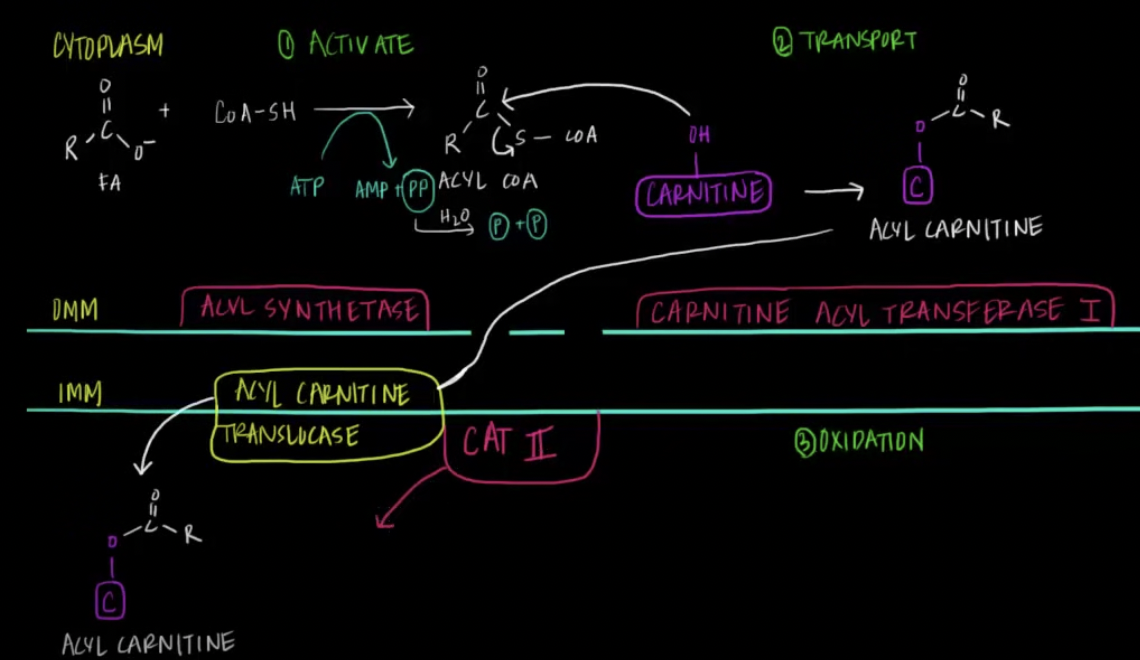 CYTOPLASM
① ACTIVATE
② TRANSPORT
O
C
R O⁻
FA
+
CoA-SH
ATP
AMP + PP
O
C
R S - COA
ACYL COA
H₂O
P + P
OH
CARNITINE
O
O C R
C
ACYL CARNITINE
OMM
ACYL SYNTHETASE
CARNITINE ACYL TRANSFERASE I
IMM
ACYL CARNITINE
TRANSLOCASE
CAT II
③ OXIDATION
O
O C R
C
ACYL CARNITINE